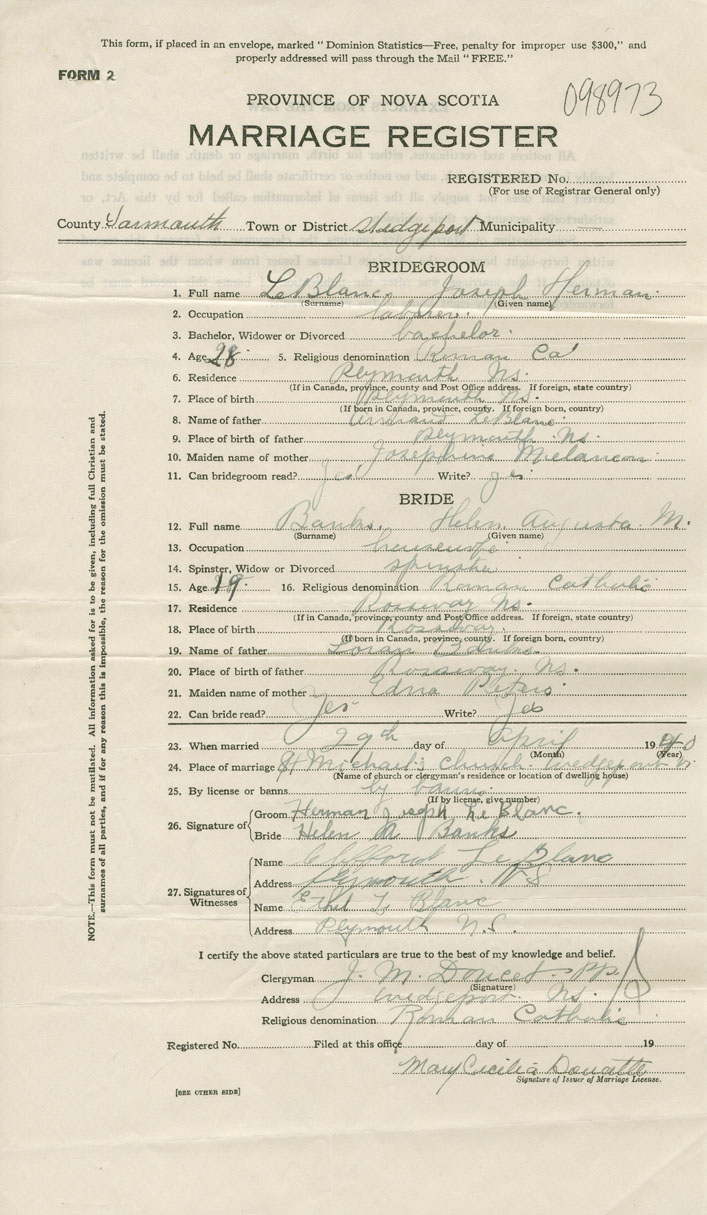 This form, if placed in an envelope, marked "Dominion Statistics—Free, penalty for improper use $300," and
properly addressed will pass through the Mail "FREE."
FORM 2
098973
PROVINCE OF NOVA SCOTIA
MARRIAGE REGISTER
REGISTERED No.
(For use of Registrar General only)
County Yarmouth Town or District Wedgeport Municipality —
BRIDEGROOM
1. Full name LeBlanc Joseph Herman
(Surname) (Given name)
2. Occupation labourer
3. Bachelor, Widower or Divorced bachelor
4. Age 28 5. Religious denomination Roman Ca'
6. Residence Plymouth Ns.
(If in Canada, province, county and Post Office address. If foreign, state country)
7. Place of birth Plymouth Ns.
(If born in Canada, province, county. If foreign born, country)
8. Name of father Armand LeBlanc
9. Place of birth of father Plymouth Ns.
10. Maiden name of mother Josephine Melancon
11. Can bridegroom read? yes Write? yes
BRIDE
12. Full name Banks. Helen Augusta M.
(Surname) (Given name)
13. Occupation housewife
14. Spinster, Widow or Divorced spinster
15. Age 19 16. Religious denomination Roman Catholic
17. Residence Rosaway Ns.
(If in Canada, province, county and Post Office address. If foreign, state country)
18. Place of birth Rosaway
(If born in Canada, province, county. If foreign born, country)
19. Name of father Loran Banks
20. Place of birth of father Rosaway Ns.
21. Maiden name of mother Edna Peters
22. Can bride read? Yes Write? Yes
23. When married 29th day of April 1940
(Month) (Year)
24. Place of marriage St Michael's church Wedgeport N
(Name of church or clergyman's residence or location of dwelling house)
25. By license or banns by banns
(If by license, give number)
26. Signature of Groom Herman Joseph Le Blanc.
Bride Helen M Banks
27. Signatures of Witnesses Name Clifford Le Blanc
Address Plymouth N.S
Name Ethel Le Blanc
Address Plymouth N.S.
I certify the above stated particulars are true to the best of my knowledge and belief.
Clergyman J. M. Doucet - PP.
(Signature)
Address Wedgeport Ns.
Religious denomination Roman Catholic
Registered No. Filed at this office day of 19
Mary Cecilia Doucette
Signature of Issuer of Marriage License.
[SEE OTHER SIDE]
NOTE.—This form must not be mutilated. All information asked for is to be given, including full Christian and
surnames of all parties, and if for any reason this is impossible, the reason for the omission must be stated.